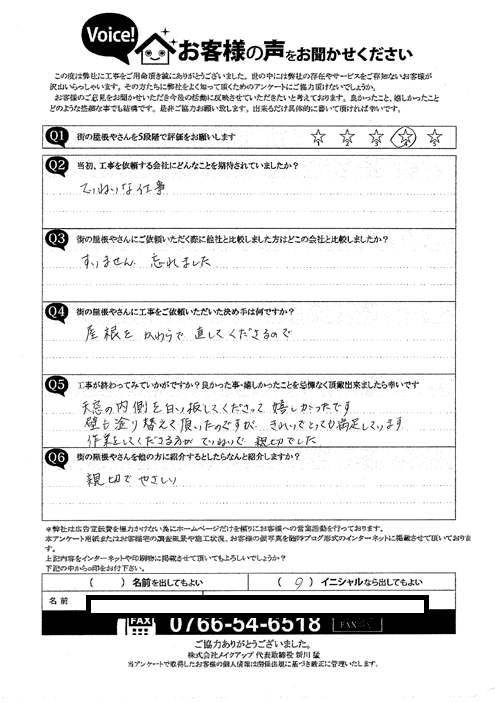 Voice!
お客様の声をお聞かせください
この度は弊社に工事をご用命頂き誠にありがとうございました。世の中には弊社の存在やサービスをご存知ないお客様が
沢山いらっしゃいます。その方たちに弊社をよく知って頂くためのアンケートにご協力頂けないでしょうか。
お客様のご意見をお聞かせいただき今後の活動に反映させていただきたいと考えております。良かったこと、嬉しかったこと
どのような些細な事でも結構です。是非ご協力お願い致します。出来るだけ具体的に書いて頂ければ幸いです。
Q1 街の屋根やさんを5段階で評価をお願いします 1 2 3 4 5
Q2 当初、工事を依頼する会社にどんなことを期待されていましたか?
ていねいな仕事
Q3 街の屋根やさんにご依頼いただく際に他社と比較しました方はどこの会社と比較しましたか?
すいません 忘れました
Q4 街の屋根やさんに工事をご依頼いただいた決め手は何ですか?
屋根を かわらで 直してくださるので
Q5 工事が終わってみていかがですか?良かった事・嬉しかったことを忌憚なく頂戴出来ましたら幸いです
天窓の内側を白い板にしてくださって 嬉しかったです
壁も塗り替えて頂いたのですが、きれいでとっても満足しています
作業をしてくださる方が ていねいで 親切でした
Q6 街の屋根やさんを他の方に紹介するとしたらなんと紹介しますか?
親切で やさしい
※弊社は広告宣伝費を極力かけない為にホームページだけを頼りにお客様への営業活動を行っております。
本アンケート用紙またはお客様宅の調査風景や施工状況、お客様の顔写真を随時ブログ形式のインターネットに掲載させて頂いておりま
す。
上記内容をインターネットや印刷物に掲載させて頂いてもよろしいでしょうか?
下記の中から○印をお付下さい。
( ) 名前を出してもよい ( ○ ) イニシャルなら出してもよい
名前
FAX 0766-54-6518
ご協力ありがとうございました。
株式会社メイクアップ 代表取締役 新川 猛
当アンケートで取得したお客様の個人情報は関係法規に基づき厳正に管理いたします。